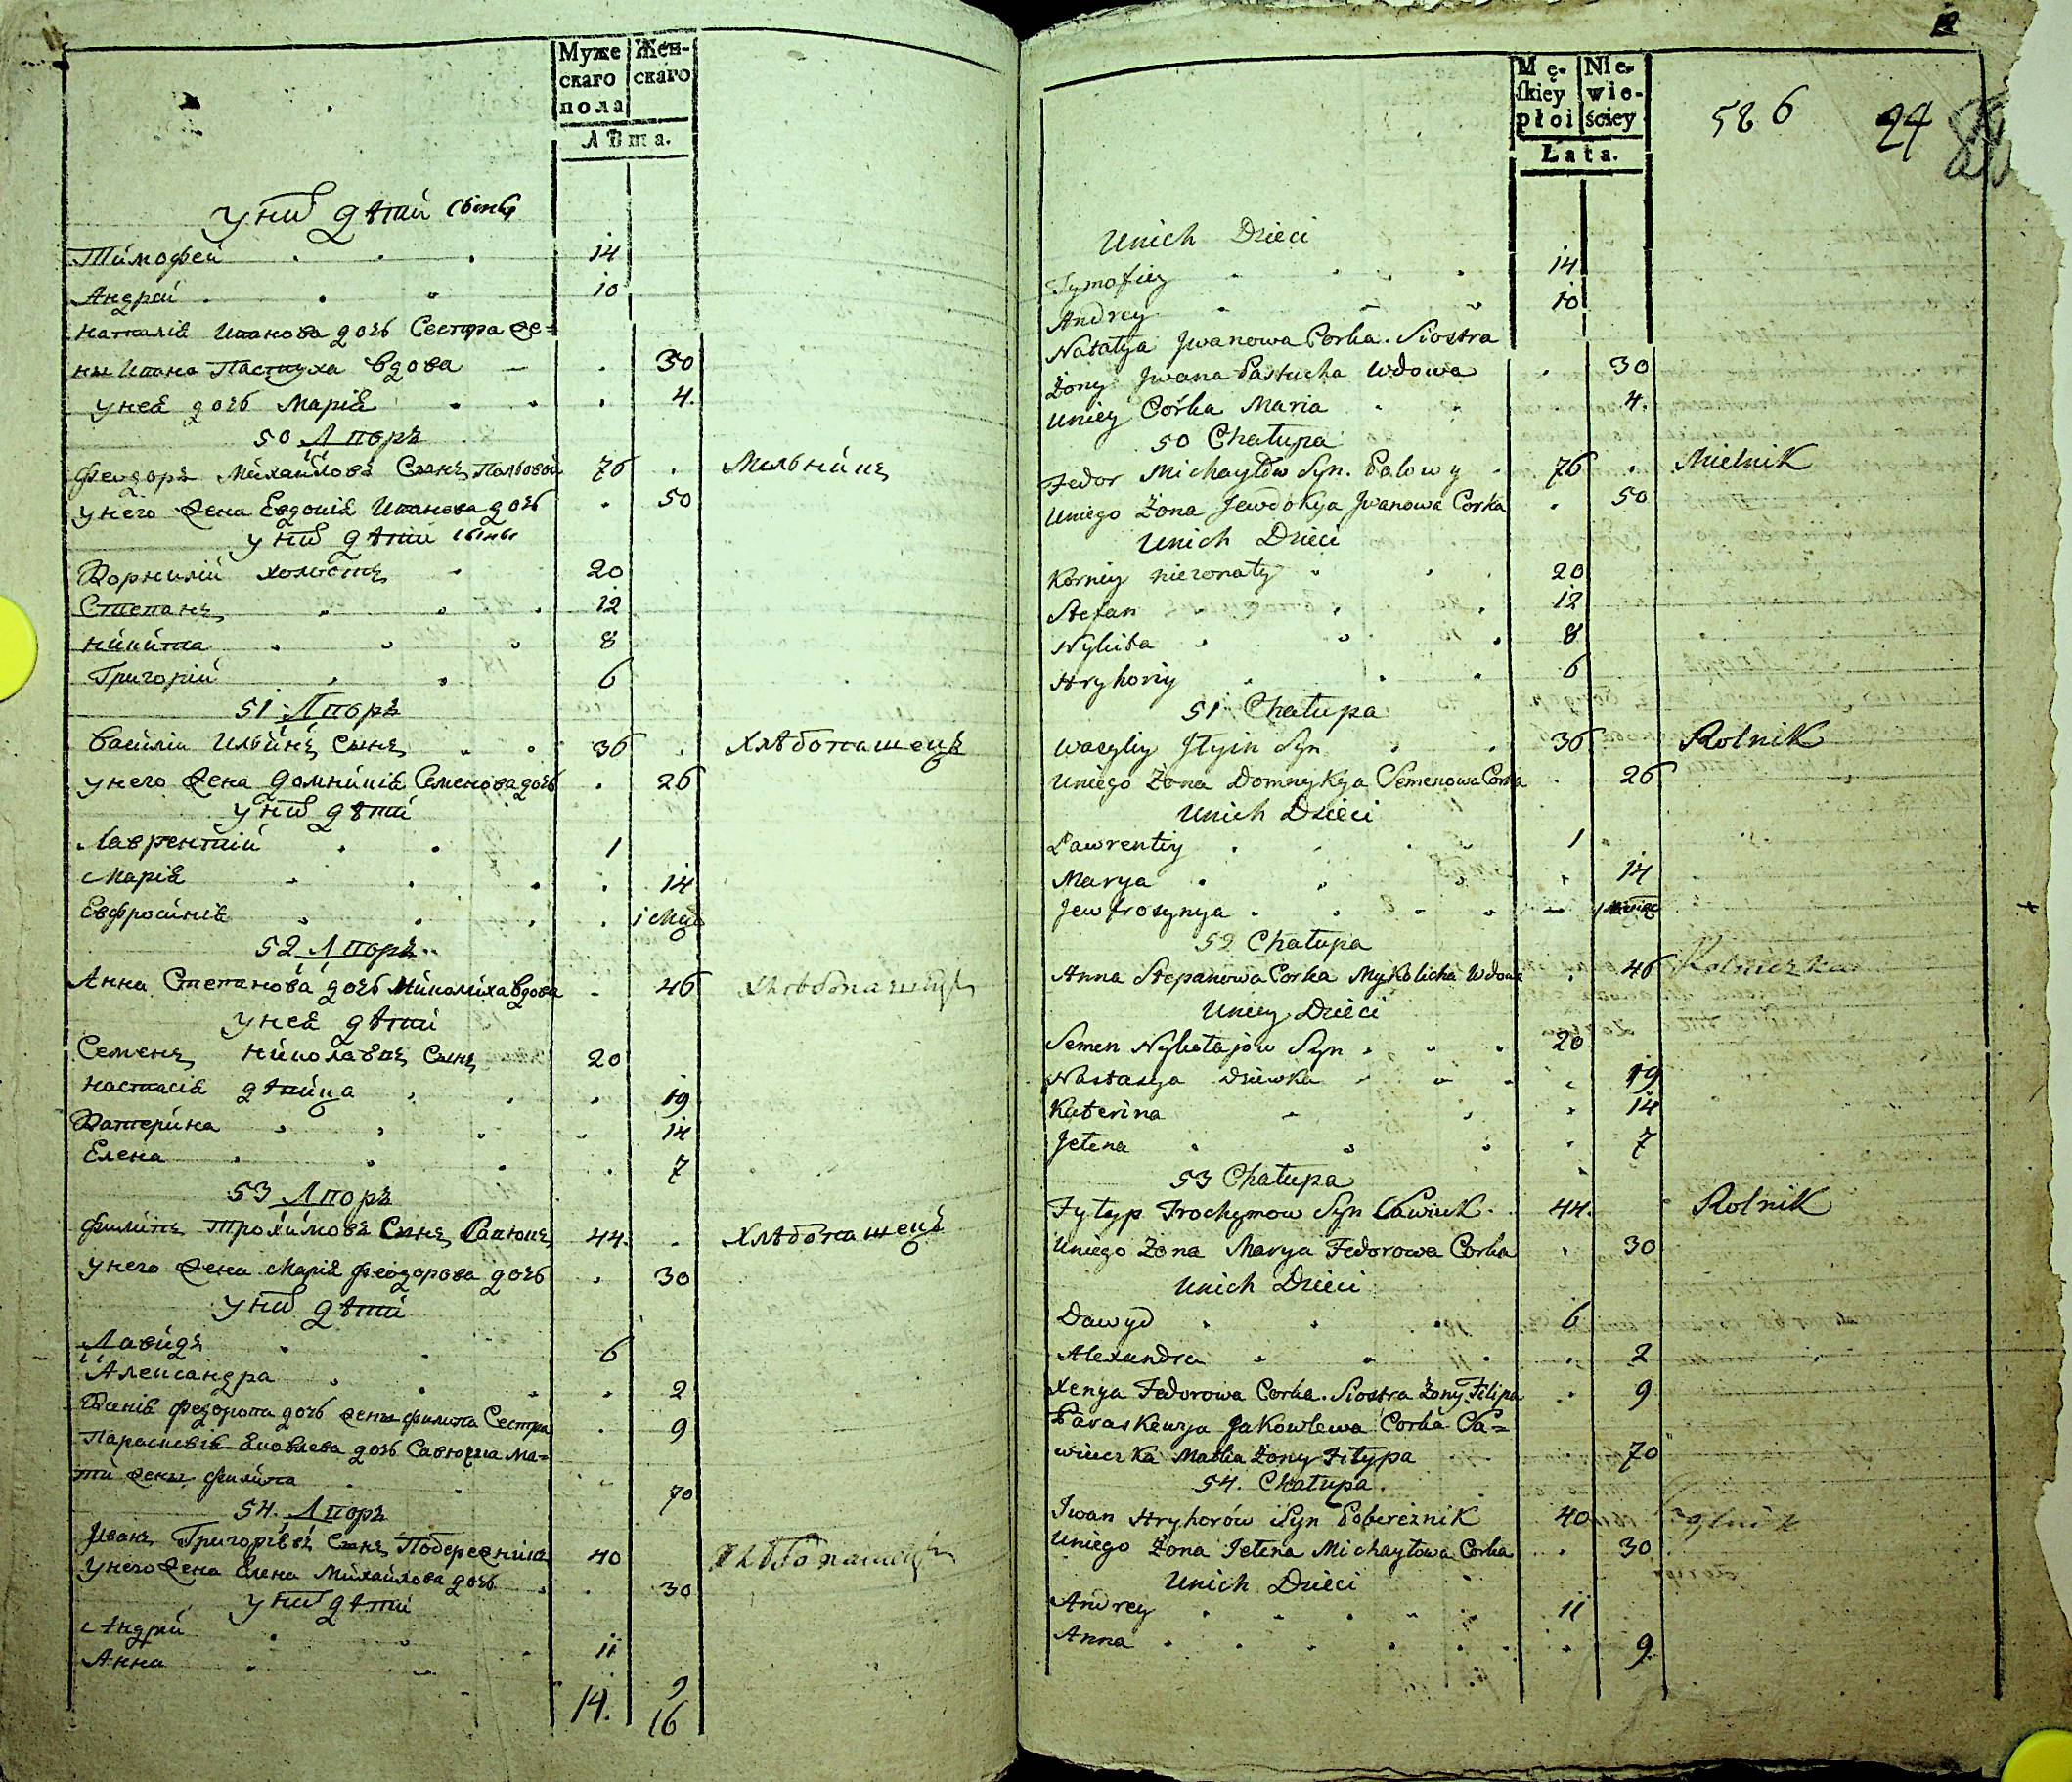 Муже Жен-
скаго скаго
пола
Лѣта.
у них дѣти сыны
Тимофей 14
Андрей 10
Наталія Иванова дочь Сестра же=
ны Ивана Пастуха вдова 30
у неѣ дочь Марія 4.
50 Двор
Феодоръ Михайловъ Сынъ Польовой 76 Мельникъ
у него жена Евдокія Иванова дочь 50
у них дѣти сыны
Корнилій холостъ 20
Степанъ 12
Никита 8
Григорій 6
51 Двор
Василій Ильинъ Сынъ 36 Хлѣбопашецъ
у него жена Домникія Семенова дочь 26
у них дѣти
Лаврентій 1
Марія 14
Евфросинія 1 мцъ
52 Двор
Анна Степанова дочь Николиха вдова 46
у неѣ дѣти
Семенъ Николаевъ Сынъ 20
Настасія дѣвица 19
Катерина 14
Елена 7
53 Двор
Филипъ Трохимовъ Сынъ Савюкъ 44. Хлѣбопашецъ
у него жена Марія Феодорова дочь 30
у них дѣти
Давидъ 6
Александра 2
Ксенія Федорова дочь жены Филипа Сестра 9
Параскевія Яковлева дочь Савючка ма=
ти жены Филипа 70
54. Двор
Иванъ Григоріевъ Сынъ Побережникъ 40 Хлѣбопашецъ
у него жена Елена Михайлова дочь 30
у них дѣти
Андрей 11
Анна 9
14. 16
12
Mę- Nie-
skiey wie-
płci ściey
Łata.
586 24
Unich Dzieci
Tymofiey 14
Andrey 10
Natalya Jwanowa Corka. Siostra
Żony Jwana Pastucha Wdowa 30
Uniey Corka Maria 4.
50 Chałupa
Fedor Michayłow Syn. Polowy 76 Mielnik
Uniego Żona Jewdokya Jwanowa Corka 50
Unich Dzieci
Korniy nieżonaty 20
Stefan 12
Nykita 8
Hryhoriy 6
51 Chałupa
Wasyliy Jlyin Syn 36 Rolnik
Uniego Żona Domnykya Semenowa Corka 26
Unich Dzieci
Ławrentiy 1
Marya 14
Jewfrosynya 1 Miesiąc
52 Chałupa
Anna Stepanowa Corka Mykolicha Wdowa 46 Rolniczka
Uniey Dzieci
Semen Nykołajow Syn 20
Nastasya Dziewka 19
Katerina 14
Jelena 7
53 Chałupa
Fyłyp Trochymow Syn Sawiuk 44. Rolnik
Uniego Żona Marya Fedorowa Corka 30
Unich Dzieci
Dawyd 6
Alexandra 2
Xenya Fedorowa Corka. Siostra Żony Filipa 9
Paraskewja Jakowlewa Corka Sa=
wiuczka Matka Żony Fiłypa 70
54. Chałupa
Jwan Hryhorów Syn Pobereżnik 40
Uniego Żona Jelena Michayłowa Corka 30
Unich Dzieci
Andrey 11
Anna 9